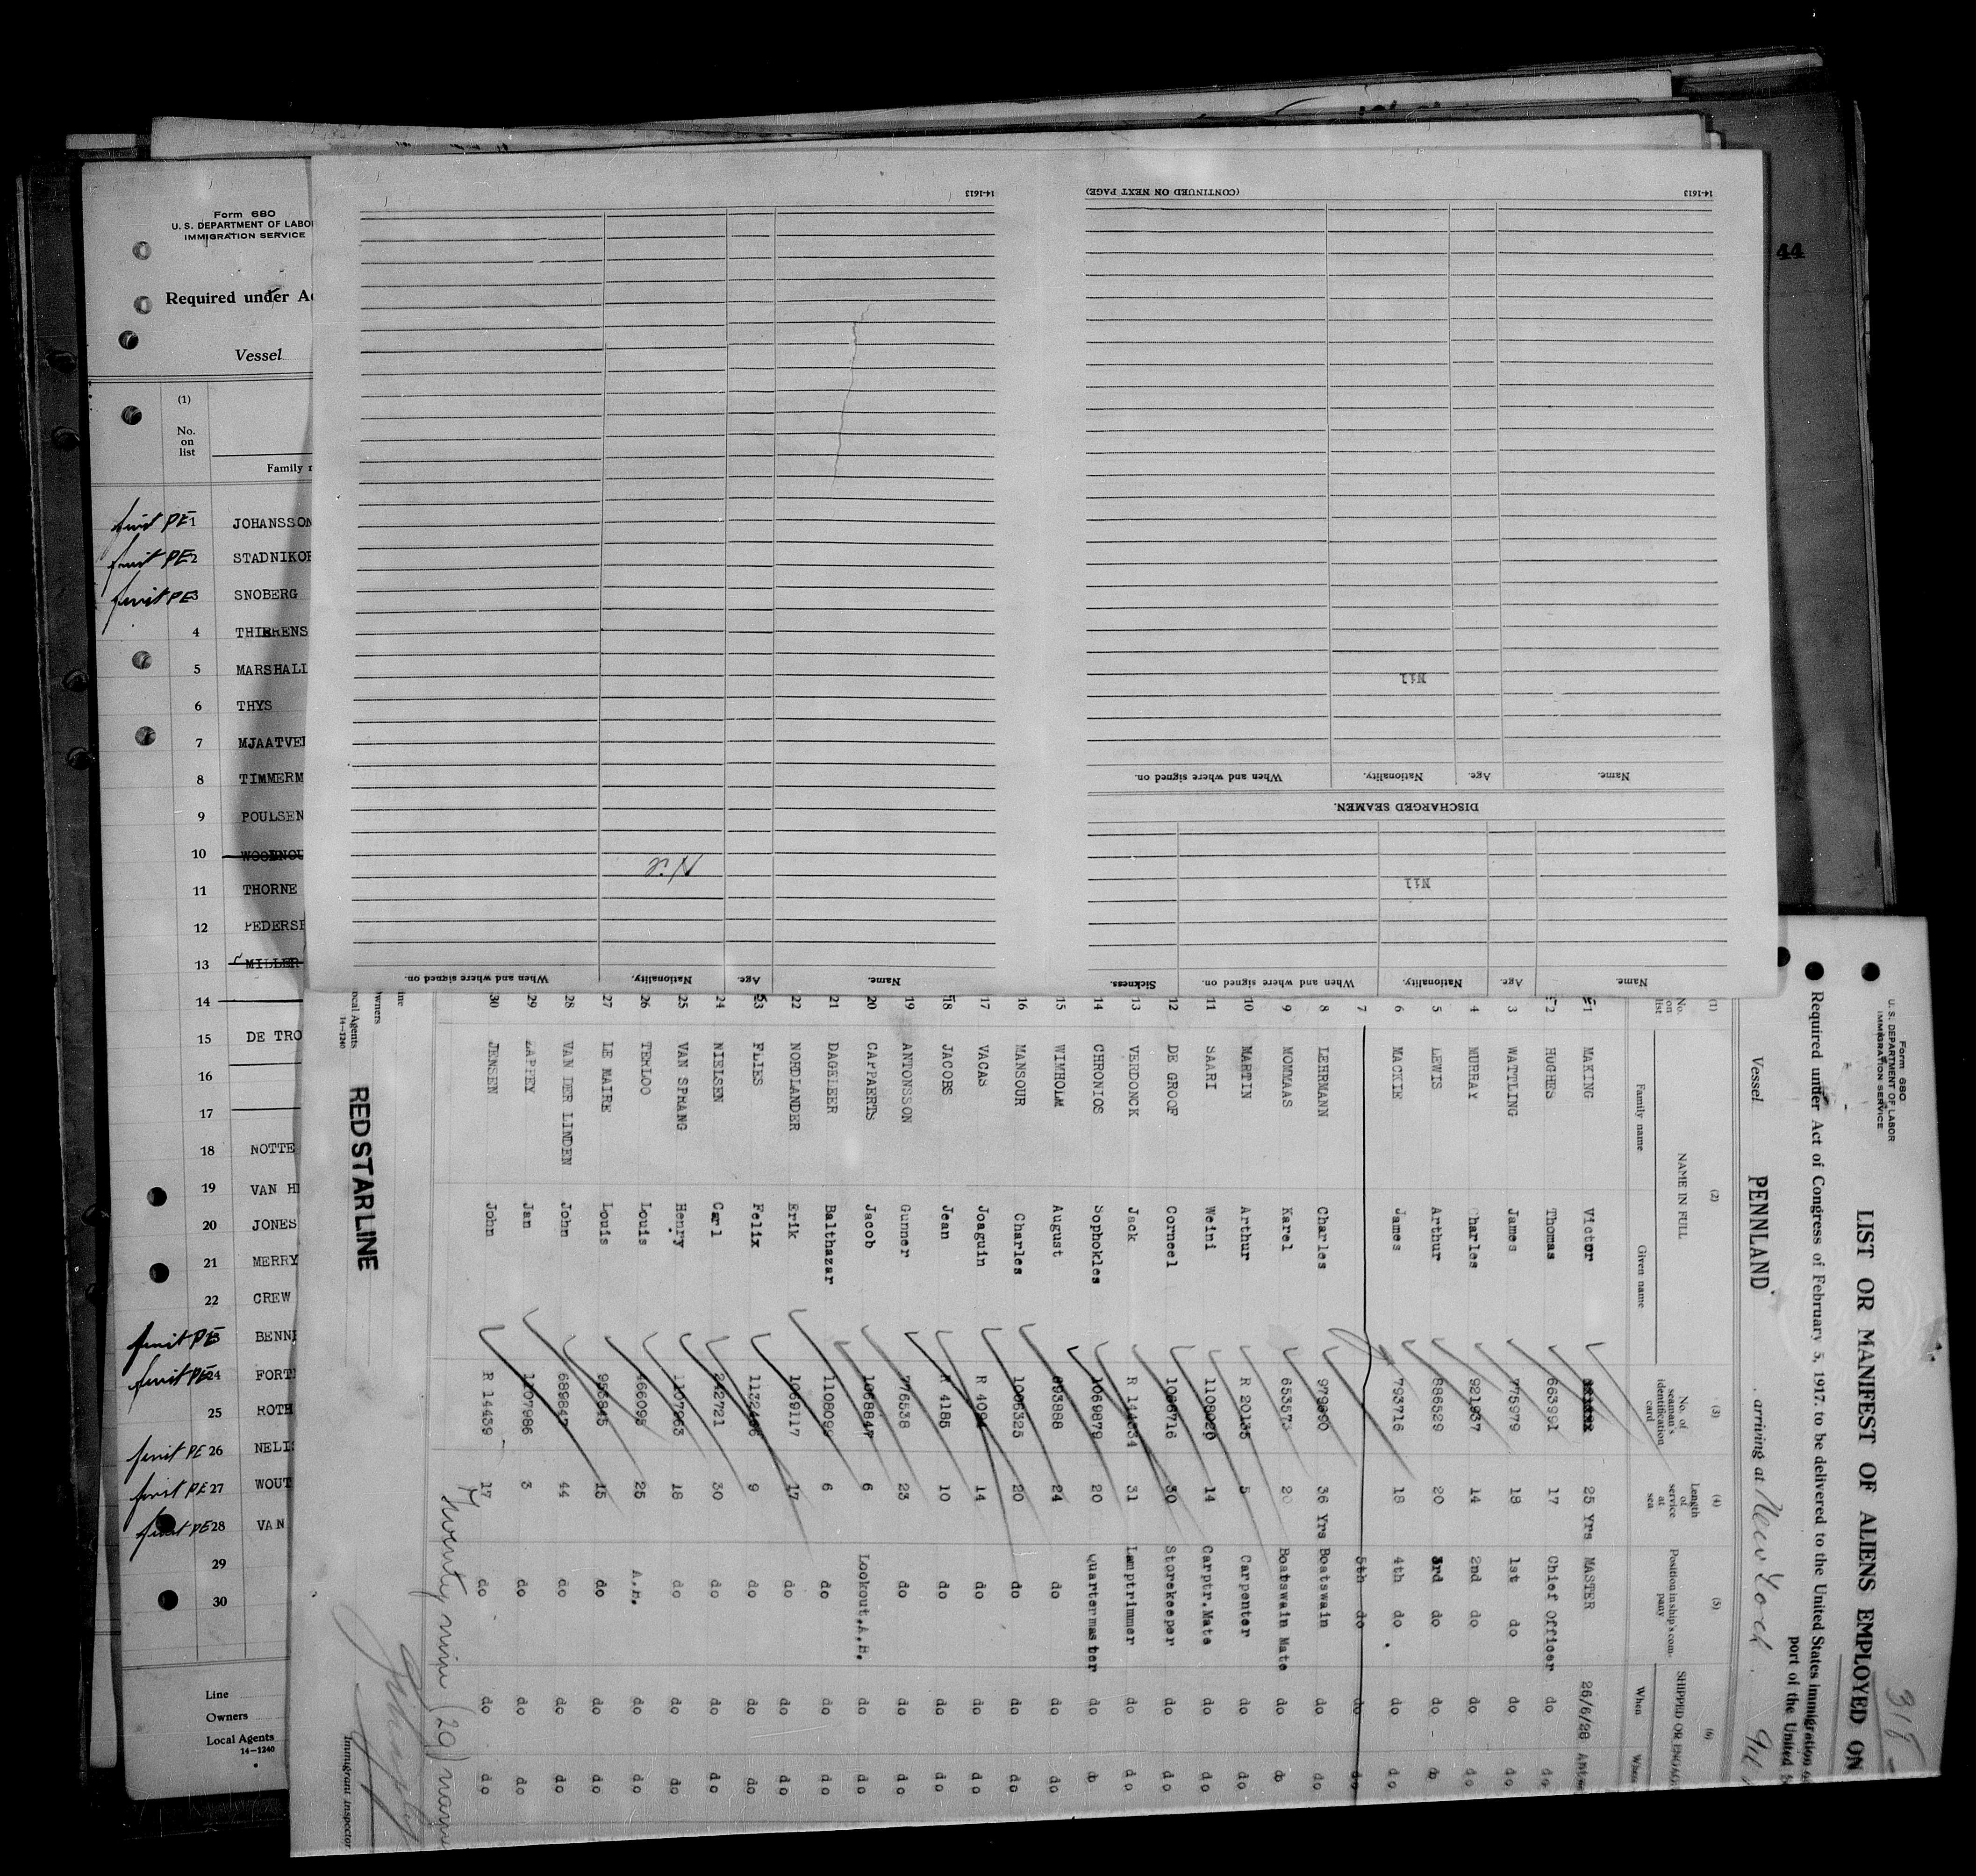 44
Form 680
U. S. DEPARTMENT OF LABO
IMMIGRATION SERVICE
Required under Ac
Vessel
(1)
No.
on
list
Family
1 JOHANSSON
2 STADNIKO
3 SNOBERG
4 THIERENS
5 MARSHALL
6 THYS
7 MJAATVE
8 TIMMERM
9 POULSEN
10
11 THORNE
12 PEDERSE
13 MILLER
14
15 DE TRO
16
17
18 NOTTE
19 VAN H
20 JONES
21 MERRY
22 CREW
BENN
24 FORT
25 ROTH
26 NELI
27 WOUT
28 VAN
29
30
Line
Owners
Local Agents
14-1240
14-1613
(CONTINUED ON NEXT PAGE)
14-1613
Name. Age. Nationality. When and where signed on. Sickness.
Nil
DISCHARGED SEAMEN.
Name. Age. Nationality. When and where signed on.
Nil
Name. Age. Nationality. When and where signed on.
Nil
Form 680
U. S. DEPARTMENT OF LABOR
IMMIGRATION SERVICE
LIST OR MANIFEST OF ALIENS EMPLOYED ON
Required under Act of Congress of February 5, 1917, to be delivered to the United States immigration
port of the United
Vessel PENNLAND arriving at New York
(1) (2) (3) (4) (5) (6)
No. on list NAME IN FULL No. of seaman's identification card Length of service at sea Position in ship's company SHIPPED OR ENGAG
Family name Given name When Where
1 MAKING Victor 25 Yrs MASTER 26/6/28 Antw
2 HUGHES Thomas 663991 17 Chief Officer do do
3 WATTLING James 775979 18 1st do do do
4 MURRAY Charles 921937 14 2nd do do do
5 LEWIS Arthur 886529 20 3rd do do do
6 MACKIE James 793716 18 4th do do do
7 5th do do do
8 LEHRMANN Charles 979690 36 Yrs Boatswain do do
9 MOMMAAS Karel 653573 20 Boatswain Mate do do
10 MARTIN Arthur R 20135 5 Carpenter do do
11 SAARI Weini 1108020 14 Carptr.Mate do do
12 DE GROOF Corneel 1066716 30 Storekeeper do do
13 VERDONCK Jack R 14434 31 Lamptrimmer do do
14 CHRONIOS Sophokles 1069879 20 Quartermaster do do
15 WIMHOLM August 693888 24 do do do
16 MANSOUR Charles 1006325 20 do do do
17 VACAS Joaguin 14 do do do
18 JACOBS Jean R 4185 10 do do do
19 ANTONSSON Gunner 776538 23 do do do
20 CAPPAERTS Jacob 1068847 6 Lookout.A.B. do do
21 DAGELEER Balthazar 6 do do do
22 NORDLANDER Erik 1069117 17 do do do
23 FLIES Felix 9 do do do
24 NIELSEN Carl 242721 30 do do do
25 VAN SPRANG Henry 1107963 18 do do do
26 TERLOO Louis 466095 25 A.B. do do
27 LE MAIRE Louis 956845 15 do do do
28 VAN DER LINDEN John 689847 44 do do do
29 ZAPPEY Jan 1207986 3 do do do
30 JENSEN John R 14439 17 do do do
Twenty nine (29) name
ine
wners
ocal Agents
14-1240
RED STAR LINE
Immigrant Inspector